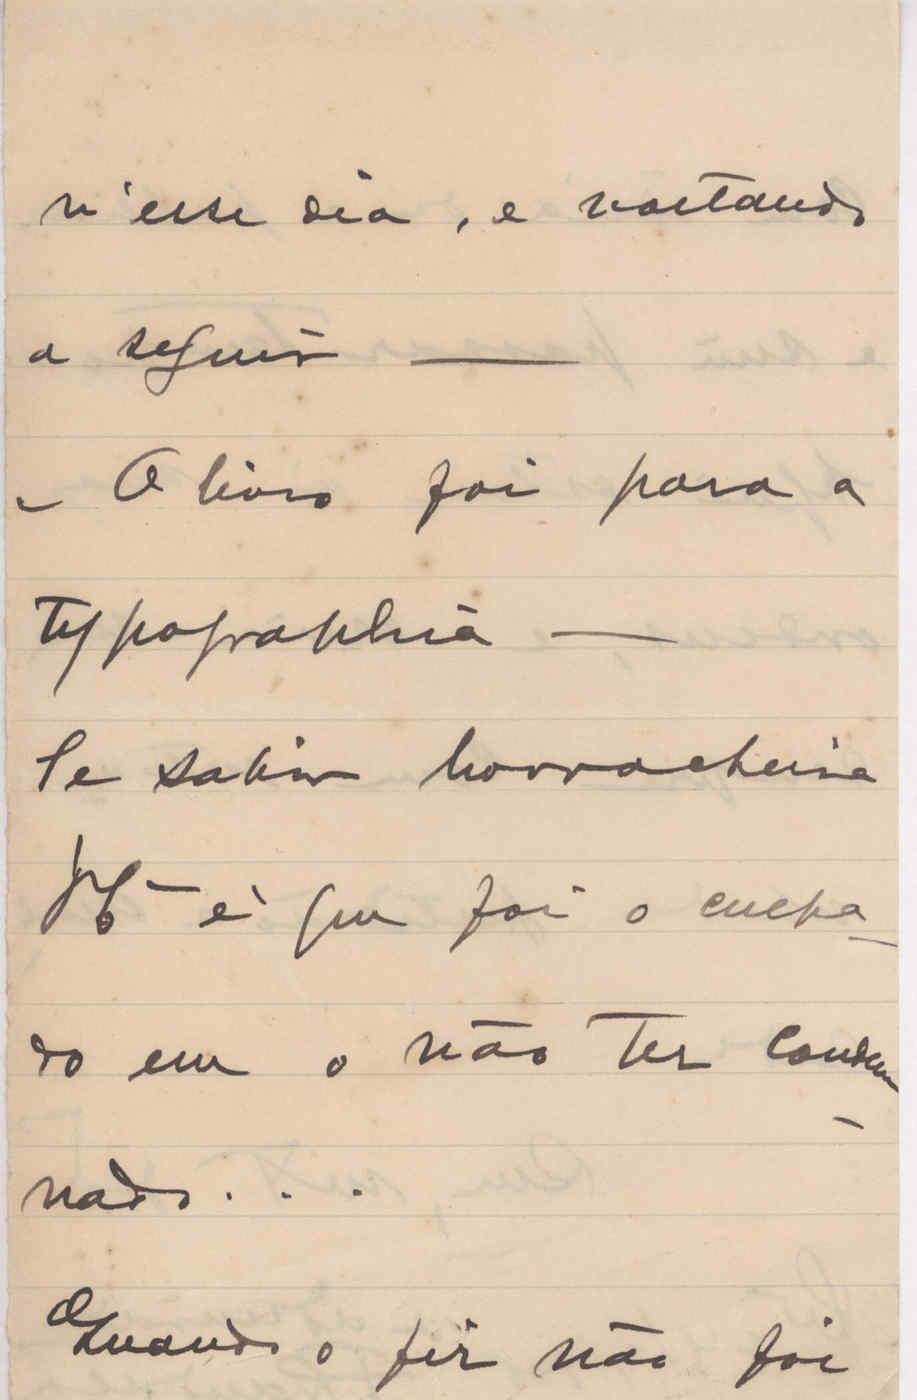 n'esse dia, e voltando
a seguir —
O livro foi para a
typographia —
Se sahir borracheira
é que foi o culpa-
do em o não ter condem-
nado...
Quando o fiz não foi